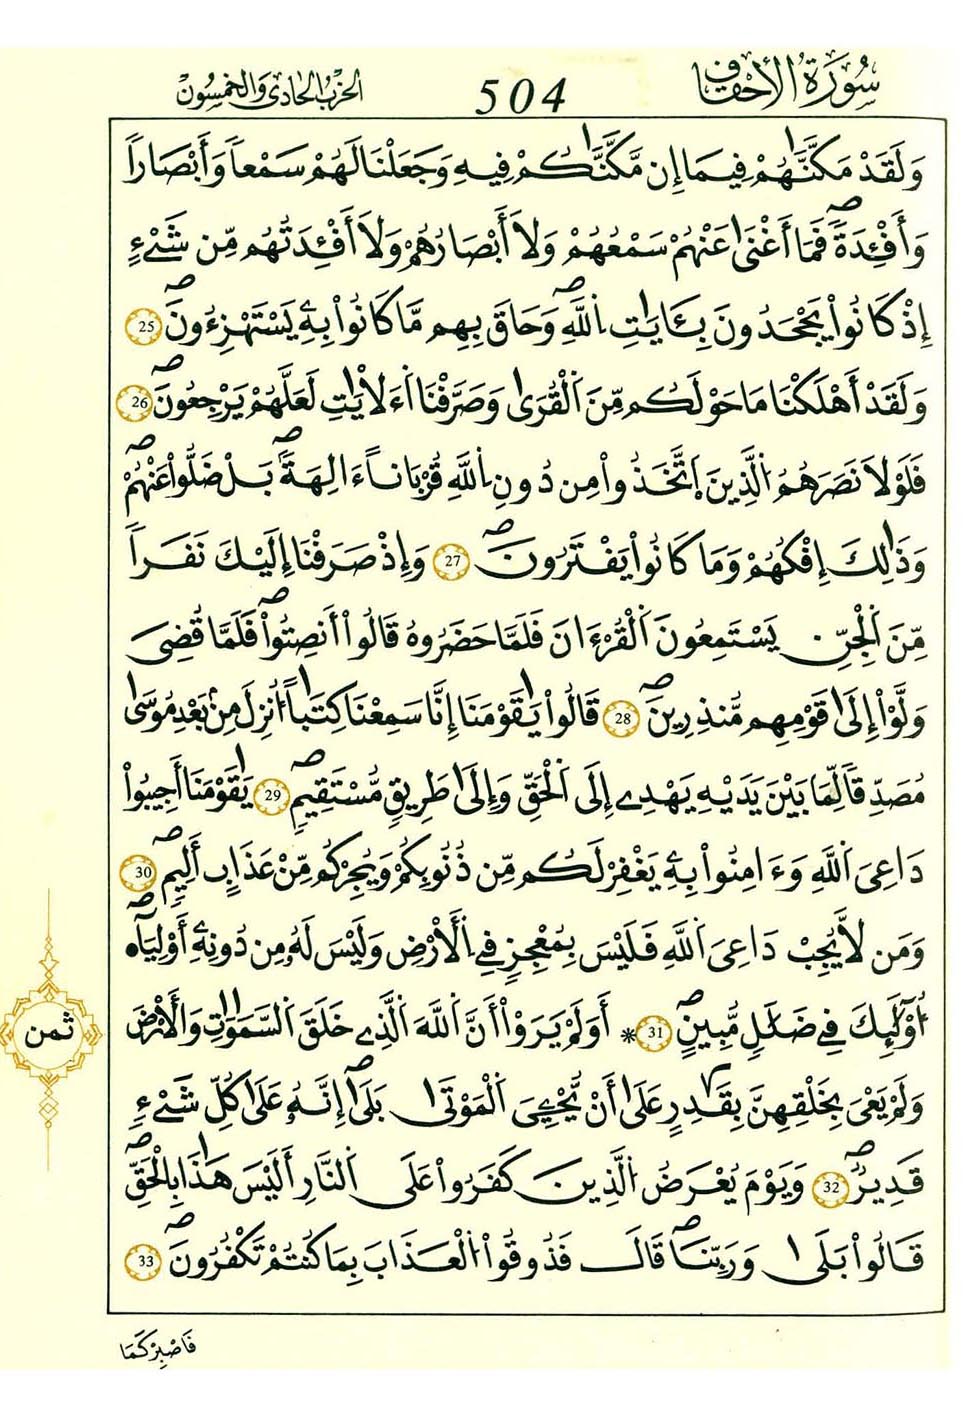 سُورَةُ الأَحْقَافِ 504 الحِزْبُ الحَادِي وَالخَمْسُونَ
وَلَقَدْ مَكَّنَّٰهُمْ فِيمَا إِن مَّكَّنَّٰكُمْ فِيهِ وَجَعَلْنَا لَهُمْ سَمْعاً وَأَبْصَٰراً
وَأَفْـِٕدَةً فَمَا أَغْنَىٰ عَنْهُمْ سَمْعُهُمْ وَلَا أَبْصَٰرُهُمْ وَلَا أَفْـِٕدَتُهُم مِّن شَےْءٍ
إِذْ كَانُواْ يَجْحَدُونَ بِـَٔايَٰتِ اِ۬للَّهِ وَحَاقَ بِهِم مَّا كَانُواْ بِهِۦ يَسْتَهْزِءُونَ 25
وَلَقَدْ أَهْلَكْنَا مَا حَوْلَكُم مِّنَ اَ۬لْقُرَىٰ وَصَرَّفْنَا اَ۬ءَلْأيَٰتِ لَعَلَّهُمْ يَرْجِعُونَ 26
فَلَوْلَا نَصَرَهُمُ اُ۬لَّذِينَ اَ۪تَّخَذُواْ مِن دُونِ اِ۬للَّهِ قُرْبَاناً ءَالِهَةً بَلْ ضَلُّواْ عَنْهُمْ
وَذَٰلِكَ إِفْكُهُمْ وَمَا كَانُواْ يَفْتَرُونَ 27 وَإِذْ صَرَفْنَا إِلَيْكَ نَفَراً
مِّنَ اَ۬لْجِنِّ يَسْتَمِعُونَ اَ۬لْقُرْءَانَ فَلَمَّا حَضَرُوهُ قَالُواْ أَنصِتُواْ فَلَمَّا قُضِىَ
وَلَّوْاْ اِلَىٰ قَوْمِهِم مُّنذِرِينَ 28 قَالُواْ يَٰقَوْمَنَا إِنَّا سَمِعْنَا كِتَٰباً ا۟نزِلَ مِنۢ بَعْدِ مُوسَىٰ
مُصَدِّقاً لِّمَا بَيْنَ يَدَيْهِ يَهْدِے إِلَى اَ۬لْحَقِّ وَإِلَىٰ طَرِيقٍ مُّسْتَقِيمٍ 29 يَٰقَوْمَنَا أَجِيبُواْ
دَاعِىَ اَ۬للَّهِ وَءَامِنُواْ بِهِۦ يَغْفِرْ لَكُم مِّن ذُنُوبِكُمْ وَيُجِرْكُم مِّنْ عَذَابٍ أَلِيمٍ 30
وَمَن لَّا يُجِبْ دَاعِىَ اَ۬للَّهِ فَلَيْسَ بِمُعْجِزٍ فِے اِ۬لْأَرْضِ وَلَيْسَ لَهُۥ مِن دُونِهِۦ أَوْلِيَآءُ
ا۟وْلَٰٓئِكَ فِے ضَلَٰلٍ مُّبِينٍ 31 * أَوَلَمْ يَرَوْاْ أَنَّ اَ۬للَّهَ اَ۬لَّذِے خَلَقَ اَ۬لسَّمَٰوَٰتِ وَالْأَرْضَ
وَلَمْ يَعْىَ بِخَلْقِهِنَّ بِقَٰدِرٍ عَلَىٰ أَنْ يُّحْـِۧىَ اَ۬لْمَوْتَىٰ بَلَىٰ إِنَّهُۥ عَلَىٰ كُلِّ شَےْءٍ
قَدِيرٌ 32 وَيَوْمَ يُعْرَضُ اُ۬لَّذِينَ كَفَرُواْ عَلَى اَ۬لنَّارِ أَلَيْسَ هَٰذَا بِالْحَقِّ
قَالُواْ بَلَىٰ وَرَبِّنَا قَالَ فَذُوقُواْ اُ۬لْعَذَابَ بِمَا كُنتُمْ تَكْفُرُونَ 33
ثمن
فَاصْبِرْ كَمَا